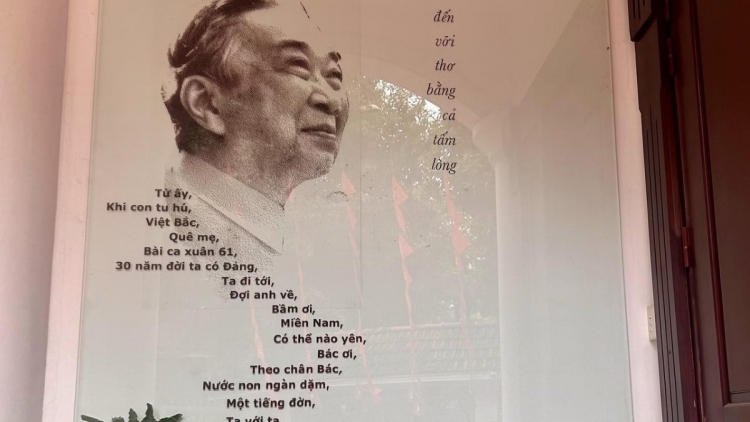 đến
với
thơ
bằng
cả
tấm
lòng
Từ ấy,
Khi con tu hú,
Việt Bắc,
Quê mẹ,
Bài ca xuân 61,
30 năm đời ta có Đảng,
Ta đi tới,
Đợi anh về,
Bầm ơi,
Miền Nam,
Có thể nào yên,
Bác ơi,
Theo chân Bác,
Nước non ngàn dặm,
Một tiếng đờn,
Ta với ta